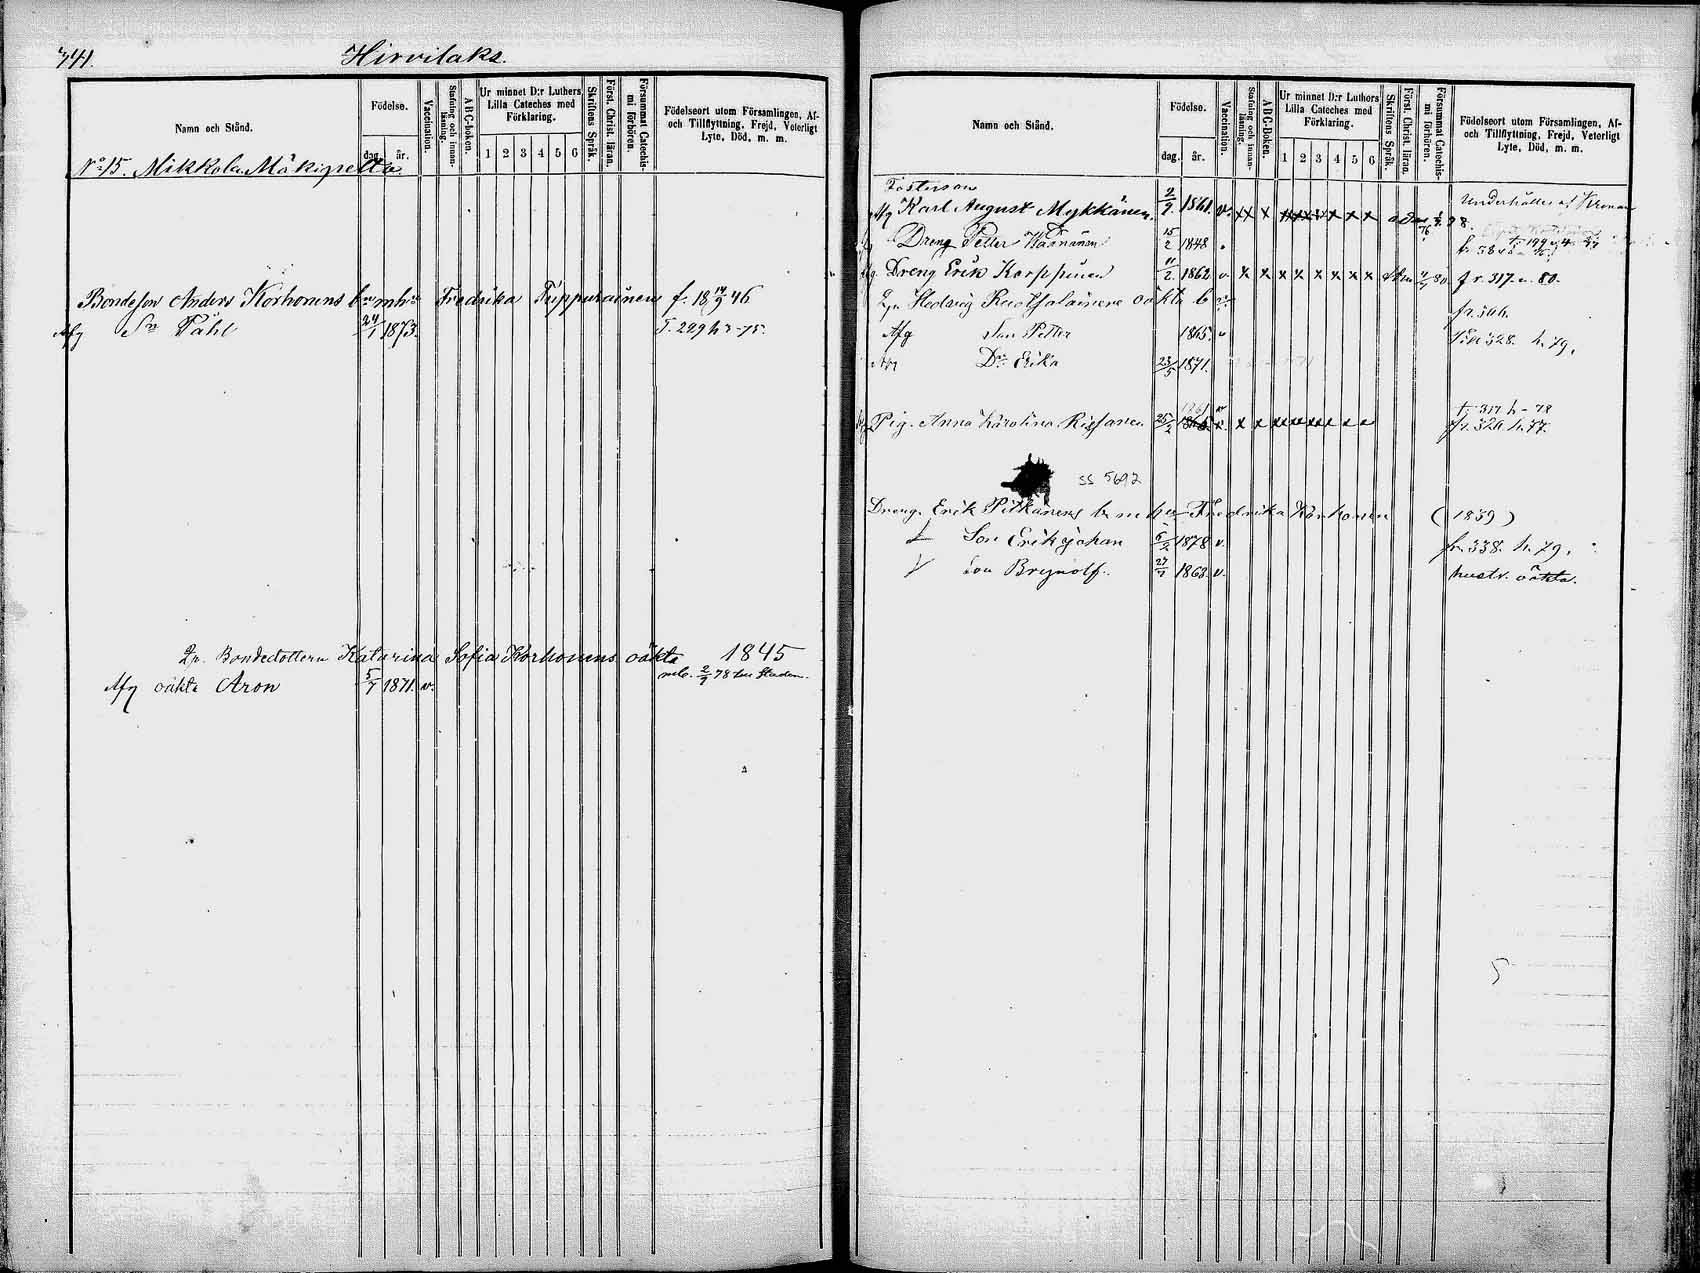 341.
Hirvilaks.
Namn och Stånd.
Födelse.
dag. år.
Vaccination.
Stafning och innan-läsning.
A B C-boken.
Ur minnet D:r Luthers Lilla Cateches med Förklaring.
1 2 3 4 5 6
Skriftens Språk.
Först. Christ. läran.
Försummat Catechismi förhören.
Födelseort utom Församlingen, Af- och Tillflyttning, Frejd, Veterligt Lyte, Död, m. m.
No 15. Mikkola Mäkipelto
Bondeson Anders Korhonens bn mhu Fredrika Tuppurainens f. 18 14/9 46
Afg Sn Påhl 24/1 1873. T. 229 h - 75.
Bondedottern Katarina Sofia Korhonens oäkta 1845
Afg oäkta Aron 5/7 1871. v. 2/9 78 Staden.
Namn och Stånd.
Födelse.
dag. år.
Vaccination.
Stafning och innan-läsning.
A B C-boken.
Ur minnet D:r Luthers Lilla Cateches med Förklaring.
1 2 3 4 5 6
Skriftens Språk.
Först. Christ. läran.
Försummat Catechismi förhören.
Födelseort utom Församlingen, Af- och Tillflyttning, Frejd, Veterligt Lyte, Död, m. m.
Fosterson
Afg Karl August Mykkänen. 2/9. 1861. v. xx x x x x x x x Underhålles af Kronan
Dreng Petter 15/2 1848
Dreng Erik Korppinen 11/2. 1862 v x x x x x x x x 80 fr. 317. n. 80.
Hedvig oäkta b fr. 366.
Afg Son Petter 1865. v 328. h. 79.
Afg Dr Erika 23/5 1871.
t. 317 h - 78
Pig. Anna Karolina 25/2 1861 v. x x x x x x x x fr. 326 h. 77.
SS 5692
Dreng. Erik Pitkänens b. m hu Fredrika Korhonen (1839)
Son Erik Johan 6/2 1878 v. fr. 338. h. 79.
Son Brynolf. 27/7 1863. v. hustr. oäkta.
5